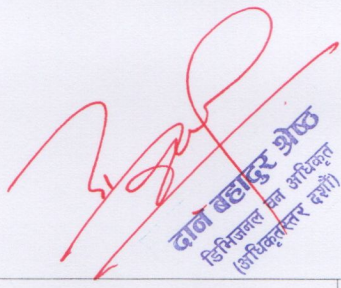 दान बहादुर श्रेष्ठ
डिभिजनल वन अधिकृत
(अधिकृतस्तर दशौं)